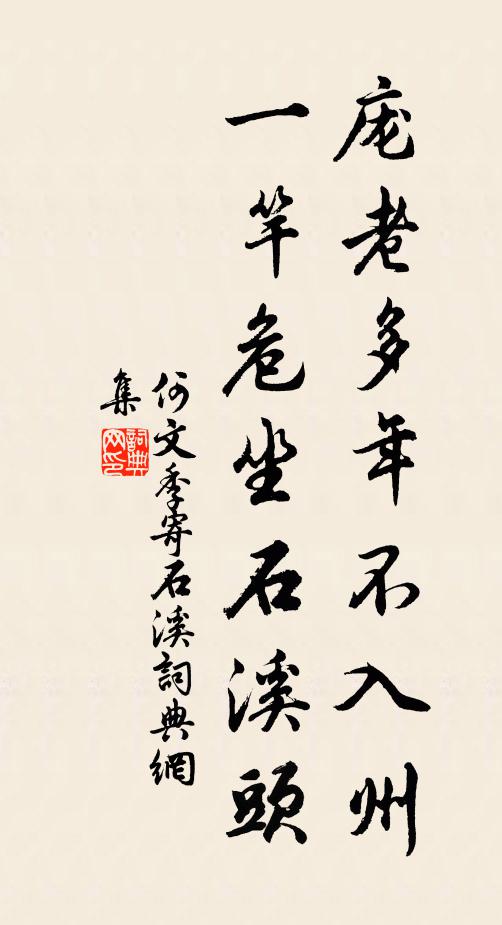 庞老多年不入州
一竿危坐石溪頭
何文季寄石溪詞典網
集
詞典
网印